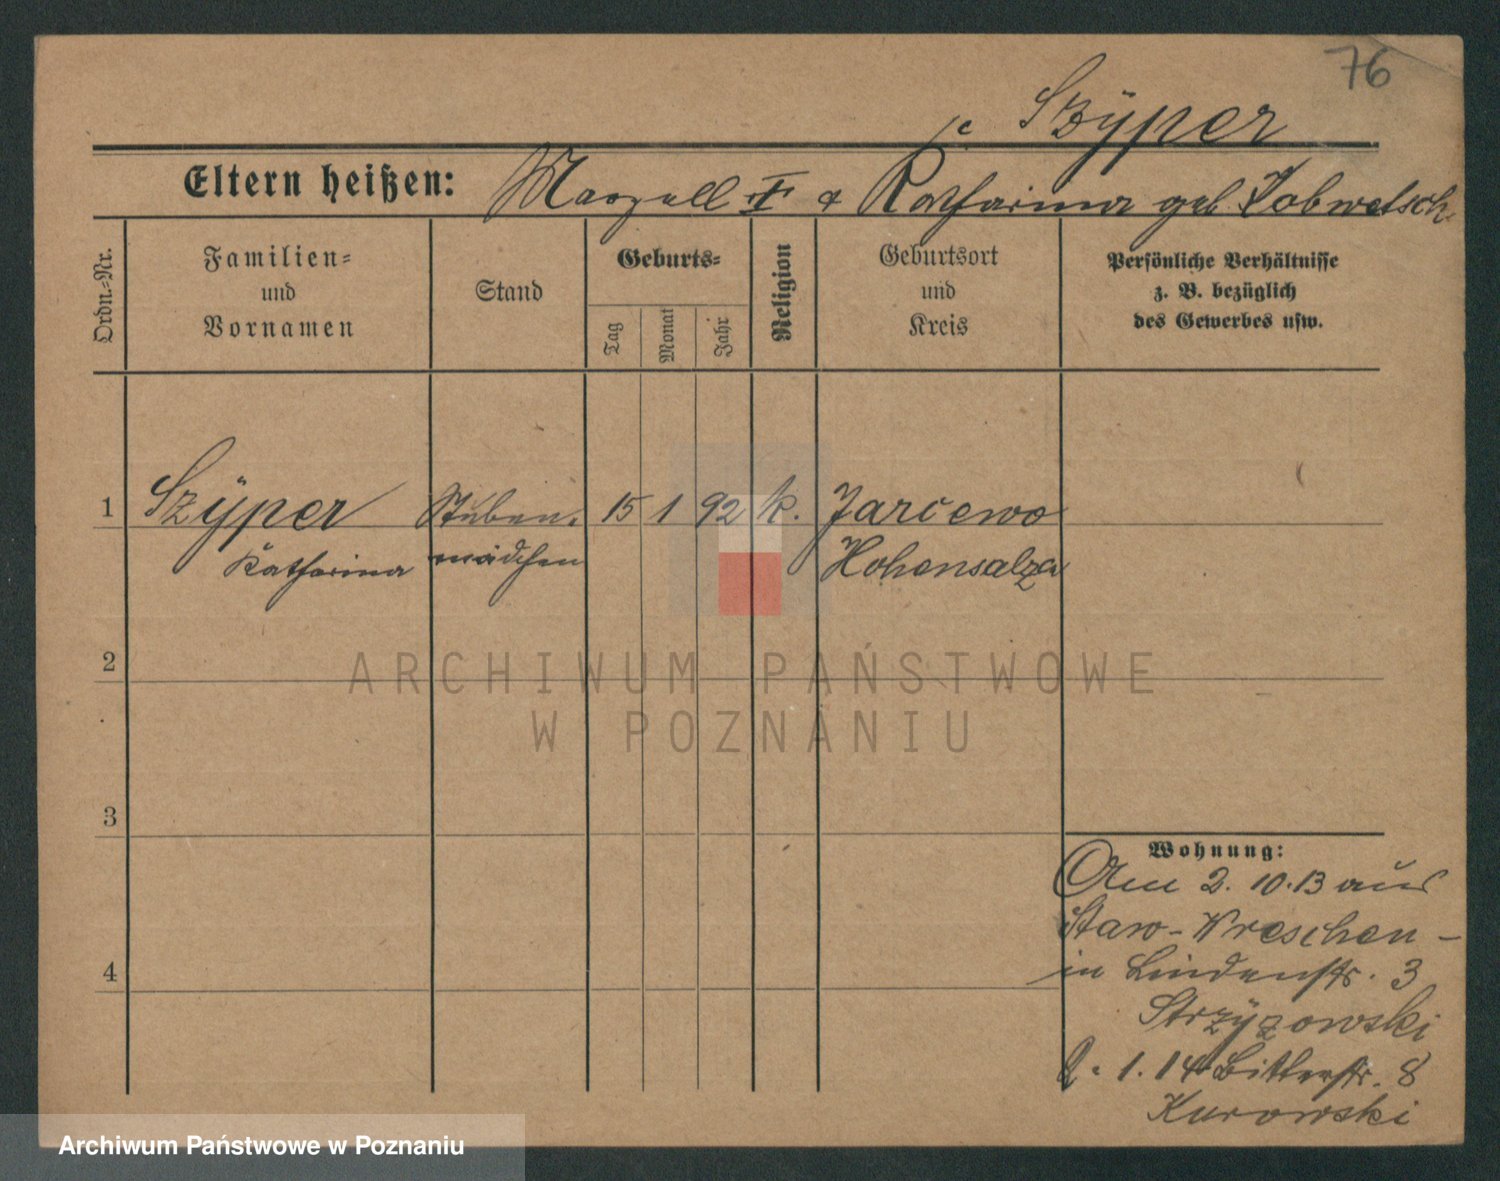 76
Szÿper
Eltern heißen: Marzell † & Katharina geb.
Ordn.=Nr.
Familien=
und
Vornamen
Stand
Geburts=
Tag
Monat
Jahr
Religion
Geburtsort
und
Kreis
Persönliche Verhältnisse
z. B. bezüglich
des Gewerbes usw.
1 Szÿper Stuben= 15 1 92 k. Jarcewo
Katharina mädchen Hohensalza
2
3
4
Wohnung:
Am 2. 10. 13 aus
Staw-Wreschen -
in Lindenstr. 3
Strzÿzowski
2. 1. 14 Bitterstr. 8
Kurowski
ARCHIWUM PAŃSTWOWE
W POZNANIU
Archiwum Państwowe w Poznaniu